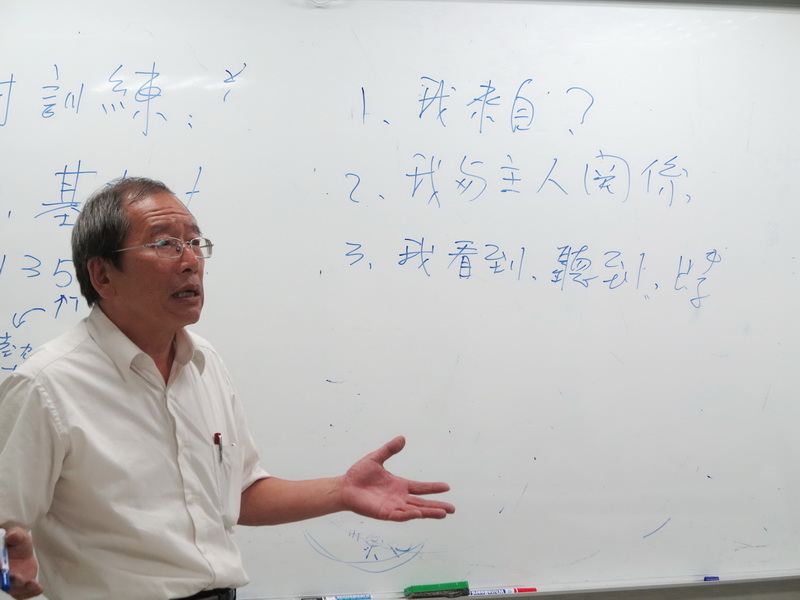 訓練:
基
135
1、我來自?
2、我与主人(関)係,
3、我看到、聽到、